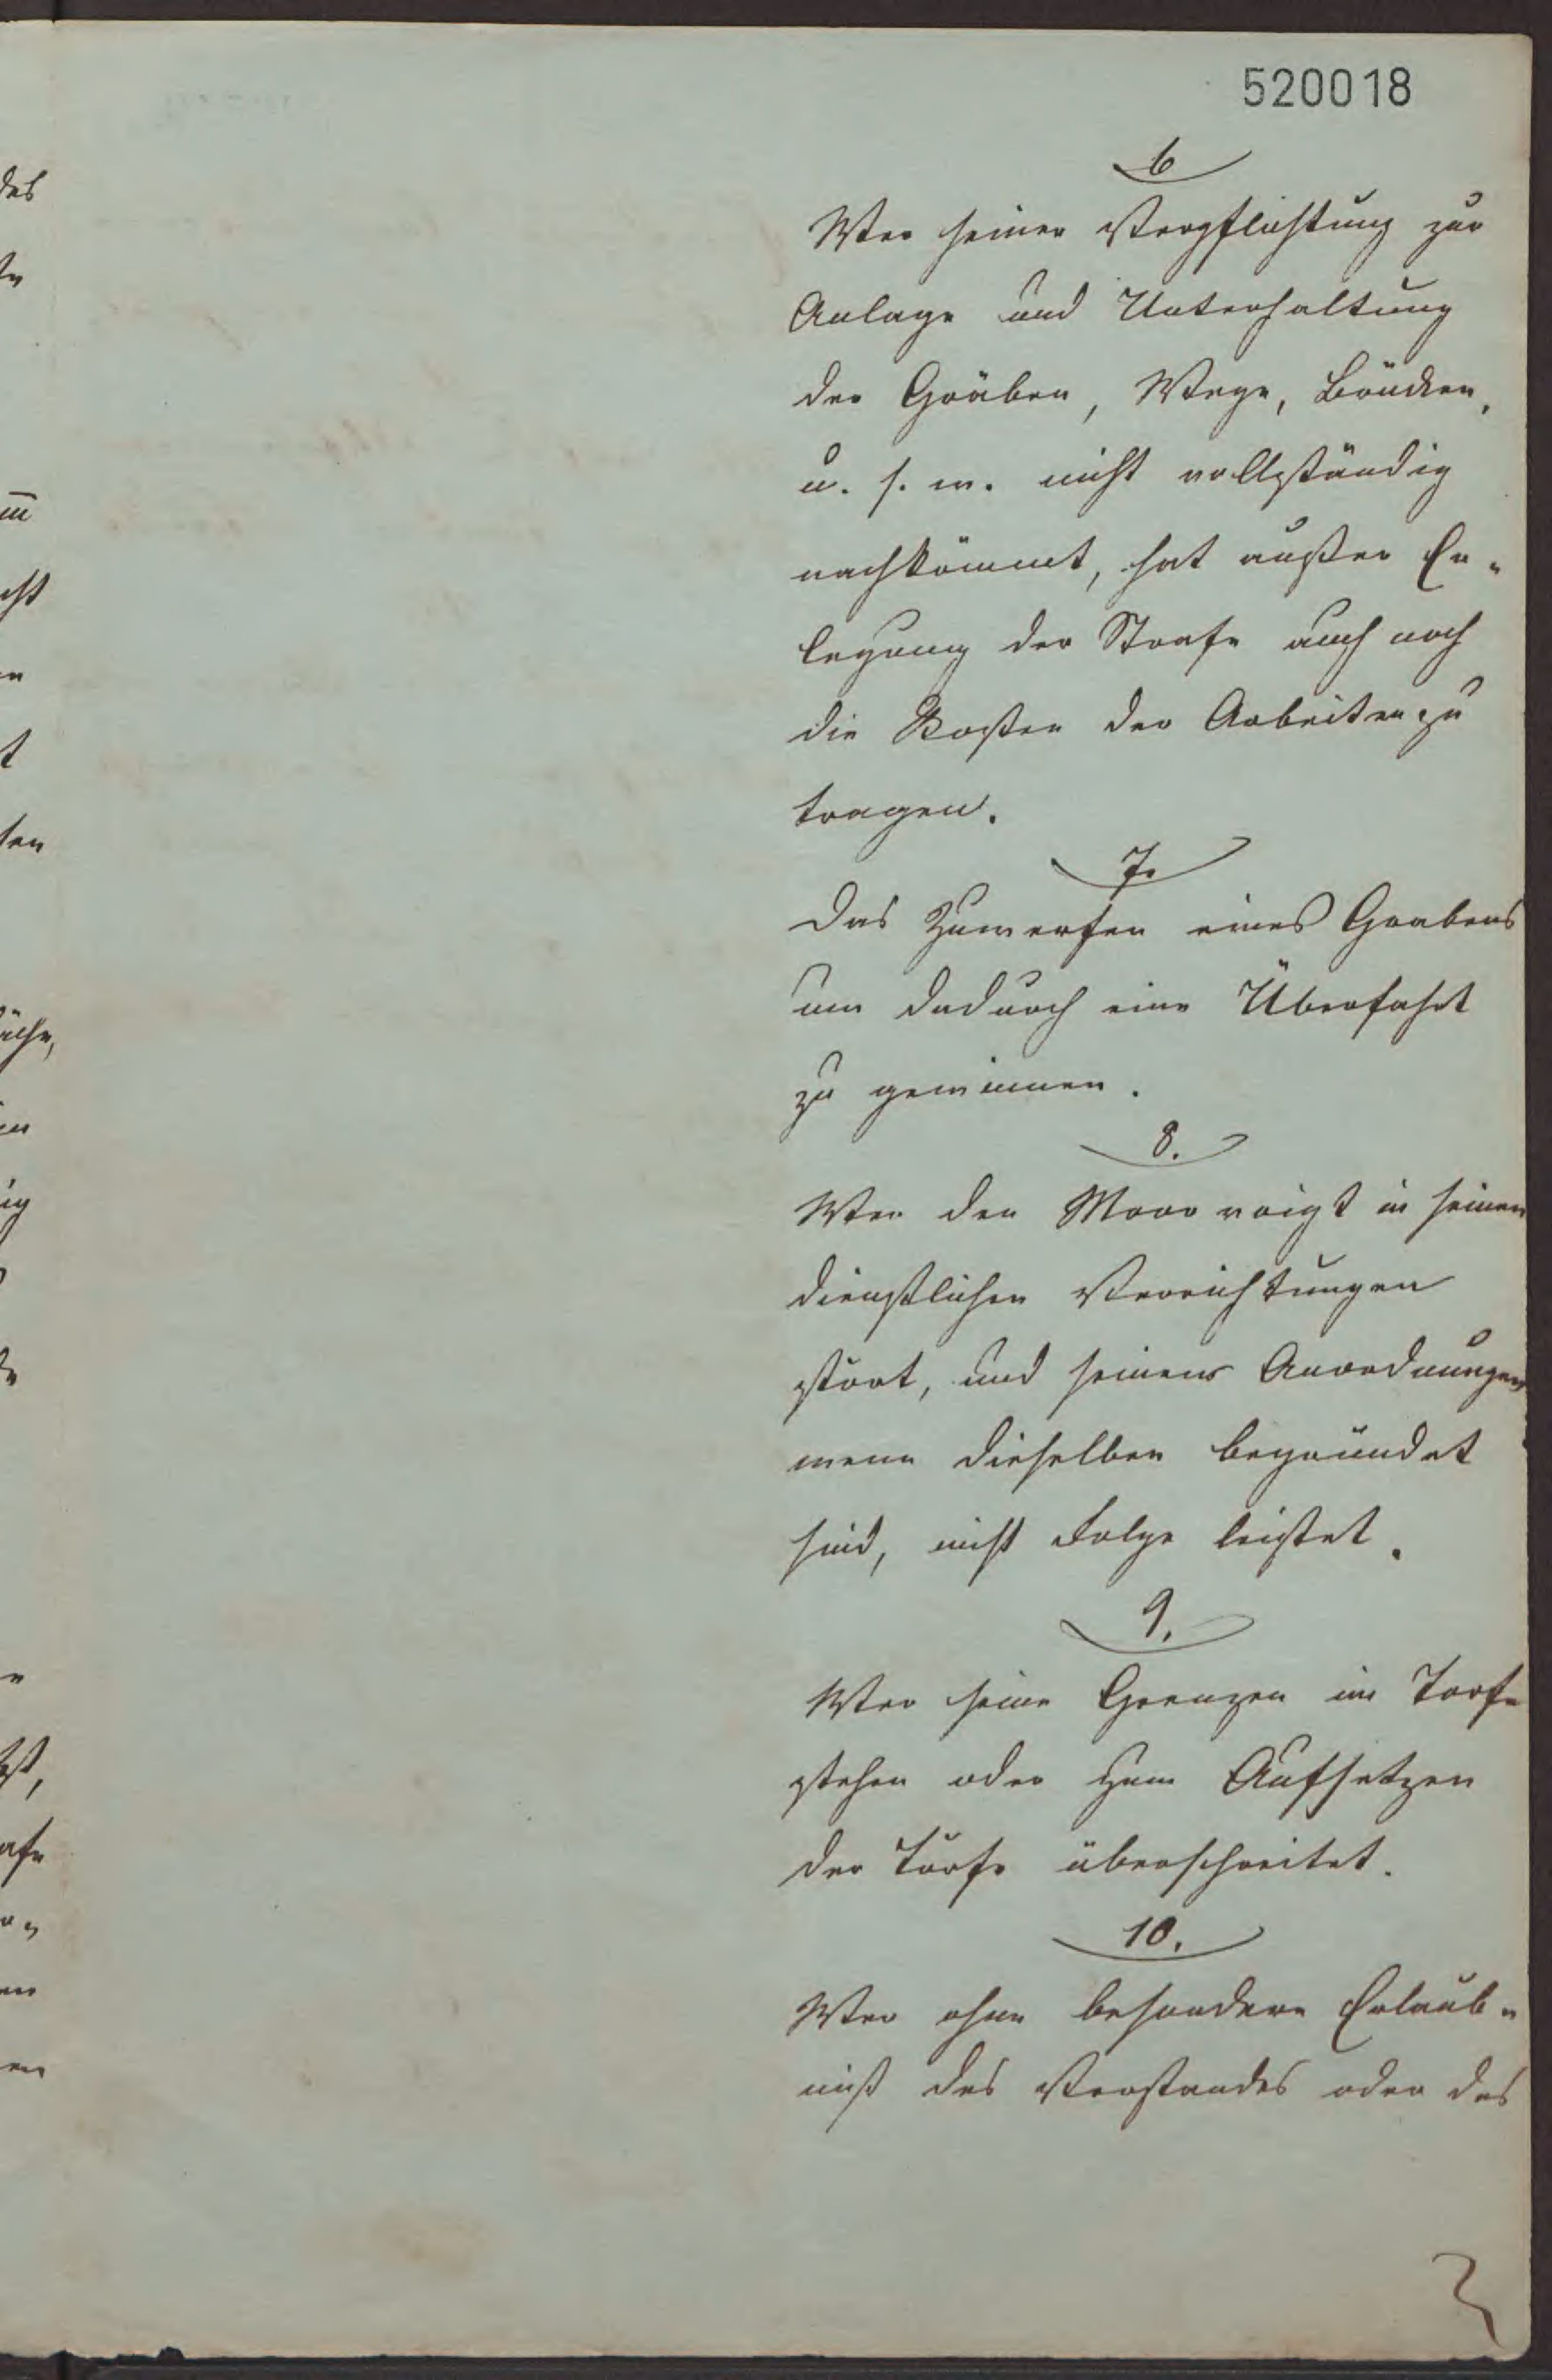 520018
6
Wer seiner Verpflichtung zur
Anlage und Unterhaltung
der Gräben, Wege, Brücken,
u. s. w. nicht vollständig
nachkömmt, hat außer Er-
legung der Strafe auch noch
die Kosten der Arbeiten zu
tragen.
7.
Das Zuwerfen eines Grabens
um dadurch eine Überfahrt
zu gewinnen.
8.
Wer den Moorvoigt in seinen
dienstlichen Verrichtungen
stört, und seinen Anordnungen
wenn dieselben begründet
sind, nicht Folge leistet.
9.
Wer seine Grenzen im Torf-
stehen oder zum Aufsetzen
der Törfe überschreitet.
10.
Wer ohne besondere Erlaub-
niß des Vorstandes oder des